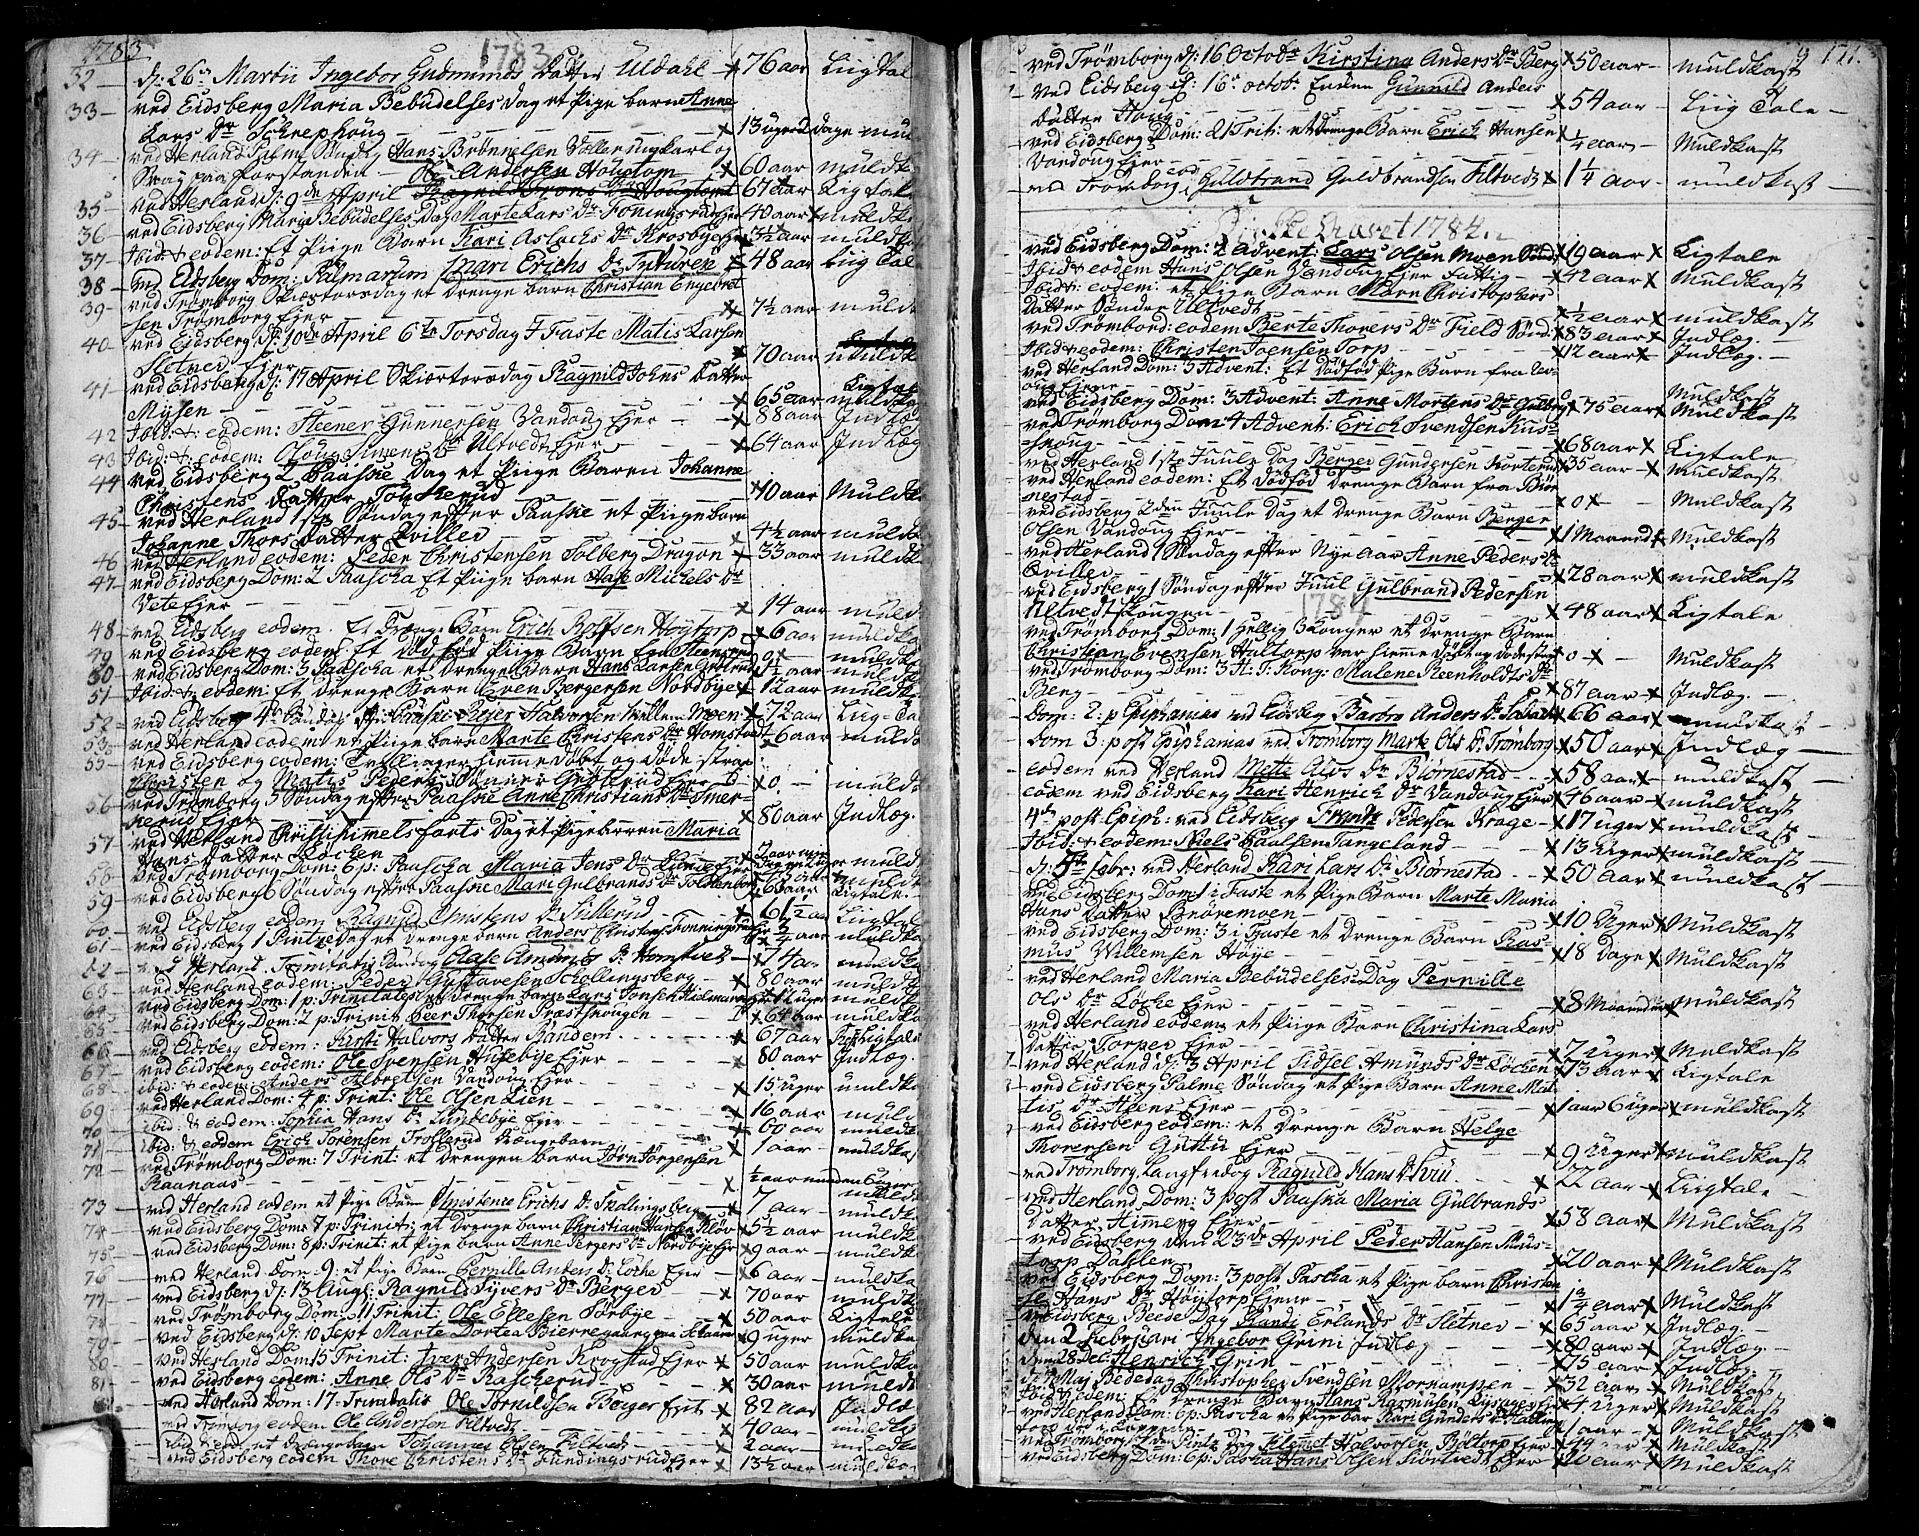 1783
1783
32 d: 26 Martii Ingebor Gudmunds Datter Uldahl 76 aar Liigtal
33 ved Eidsberg Maria Bebudelses dag et Pige barn Anne
Lars Dr Schrephoug 13 uger 2 dage muld
34 ved Herland Palme Søndag Hans Brønnelsen Vollerungkarl og
Svag paa forstanden 60 aar muldk
ved Herland d: 9de April Ole Andersen Houglom 67 aar Ligtal
35 ved Eidsberg Maria Bebudelses Dag Marte Lars Dr 40 aar muldk
36 Ibid: & eodem: Et Piige Barn Kari Aslachs Dr Krosbye Ejer 3½ aar muldk
37 ved Eidsberg Dom: Palmarum Mari Erichs Dr 48 aar Liig Tal
38 ved Trømborg Skiærtorsdag et Drenge barn Christian Engebret
39 sen Trømborg Ejer 7½ aar muldk
40 ved Eidsberg d: 10de April 6te Torsdag i Faste Matis Larsen
Sletner Ejer 70 aar muldk
41 ved Eidsberg d: 17 April Skiertorsdag Ragnild Johns Datter
Mysen 65 aar Ligtal
42 Ibid: & eodem: Steener Gunnersen Vandoug Ejer 88 aar Indlæg
43 Ibid: & eodem: Simens Dr Ultvedt Ejer 64 aar Indlæg
44 ved Eidsberg 2 Paaske Dag et Piige Barn Johanne
Christens Datter 40 aar Muldk
45 ved Herland 1ste Søndag efter Paaske et Piige barn
Johanne Thors Datter Qviller 4½ aar muldk
46 ved Herland eodem: Peder Christensen Solberg Dragon 33 aar muldk
47 ved Eidsberg Dom: 2 Paascha Et Piige barn Aase Michels Dr
Vete Ejer 14 aar muld
48 ved Eidsberg eodem: Et Drenge Barn Erich Rolfsen Høytorp 6 aar muldk
49 ved Eidsberg eodem Et Død fød Piige Barn 0 muldk
50 ved Eidsberg Dom: 3 Paascha et Drenge Barn Hans Larsen 1½ aar muldk
51 Ibid: & eodem: Et Drenge Barn Even Bergersen Nordbye 12 aar muldk
52 ved Eidsberg 4de Søndag efter Paaske Rejer Halvorsen Moen 72 aar Liig-Ta
53 ved Herland eodem: et Piige barn Marte Christens Dr Homstvedt 6 aar muldk
55 ved Eidsberg eodem: Tvillinger hiemme døbt og døde strax
Christen og Matis Peders Sønner Ejer 0 muldk
56 ved Trømborg 5 Søndag efter Paaske Anne Christians Dr Smer-
kerud Ejer 80 aar Indlæg.
57 ved Herland Christi himelfarts Dag et Pige barn Maria
Hans Datter Løchen
58 ved Trømborg Dom: 6 p: Paascha Maria Jens Dr muldk
59 ved Eidsberg 6 Søndag efter Paaske Mari Gulbrands Dr 63 aar
60 ved Eidsberg eodem Ragnild Christens Dr Sillerud 61½ aar Liigtal
61 ved Eidsberg 1 Pintze Dag et Drenge barn Anders Christens ¾ aar muldk
62 ved Herland Trinitatis Søndag Aase Amunds Dr Homstvet 74 aar muldk
63 ved Herland eodem: Peder Gustavesen Schollingsberg 80 aar muldk
64 ved Eidsberg Dom: 1 p: Trinitates et Drenge barn Lars Jonsen uger muldk
65 ved Eidsberg Dom: 2 p: Trinit Peer Thorsen Præstskougen 64 aar muldk
66 ved Eidsberg eodem: Kirsti Halvors Datter Randem 67 aar Ligtale
67 ved Eidsberg eodem: Ole Svensen Husebye Ejer 80 aar Indlæg.
68 ibid: & eodem: Anders Albretsen Vandoug Ejer 15 uger muldk
69 ved Herland Dom: 4 p: Trinit: Ole Olsen Lien 16 aar muldk
70 ibid: & eodem: Sophia Hans Dr Lundebye Ejer 60 aar muldk
71 ibid: & eodem Erich Sorensen Trollerud Drengebarn 1 aar muldk
72 ved Trømborg Dom: 7 Trinit: et Drengen barn Jørn Jørgensen
Raanaas
73 ved Herland eodem et Pige Barn Christence Erichs Dr Skollingsberg 7 aar muldk
74 ved Eidsberg Dom: 7 p: Trinit: et Drenge barn Christian Hansen Kløv 5½ aar muldk
75 ved Eidsberg Dom: 8 p: Trinit: et Pige barn Anne Bergers Dr Nordbye Ejer 9 aar muldk
76 ved Herland Dom: 9: et Pige Barn Pernille Anders Dr Løche Ejer 6 aar muldk
77 ved Eidsberg d: 13 Aug: Ragnild Syvers Dr Børger 70 aar muldk
78 ved Trømborg Dom: 11 Trinit: Ole Ellefsen Sørbye 50 aar Ligtale
79 ved Eidsberg d: 10 Sept Marte Dortea Bierregaard 9 uger muldk
80 ved Herland Dom 15 Trinit: Iver Andersen Krogstad Ejer 50 aar muldk
81 ved Eidsberg eodem: Anne Ols Dr Rascherud 30 aar muldk
82 ved Herland Dom: 17 Trinitatis Ole Tornildsen Berger Frit 82 aar Indlæg
ved Trømborg eodem Ole Andersen Filtvedt 40 aar muldk
ibid & eod: et Drengebarn Johannes Olsen Filtvedt 2 aar muldk
ved Eidsberg eodem Thore Christens Dr Fundingsrud Ejer 13½ aar muldk
171.
ved Trømborg d: 16 Octobr Kirstina Anders Dr Berg 50 aar muldkast
ved Eidsberg d: 16 octob: Enken Gunnild Anders
Datter Houg 54 aar Liig Tale
ved Eidsberg Dom: 21 Trit: et Drenge Barn Erich Hansen
Vandoug Ejer ¼ aar Muldkast
ved Trømborg eod Guldbrand Guldbrandsen Filtvedt 1¼ aar muldkast
Kirke Aaret 1784
ved Eidsberg Dom: 2 Advent: Lars Olsen Moen 19 aar Ligtale
Ibid: & eodem Hans Olsen Vandoug Ejer Fattig 42 aar Muldkast
Ibid: & eodem: et Pige Barn Maren Christophers
Datter Sønder Ultvedt ½ aar muldkast
ved Trømbord: eodem Berte Thorers Dr Field 83 aar Indlæg.
Ibid: & eodem: Christen Joensen Torp 12 aar Indlæg.
ved Herland Dom: 3 Advent: Et Dødfød Pige Barn fra
0 Muldkast
ved Eidsberg Dom: 3 Advent: Anne Mortens Dr Gulberg 75 aar Muldkast
ved Trømborg Dom 4 Advent: Erich Svendsen Kus-
houg 68 aar Ligtale
ved Herland 1ste Juule Dag Berger Gundersen Korterud 35 aar Muldkast
ved Herland eodem: Et Dødfød Drenge Barn fra Biør
nestad 0 Muldkast
ved Eidsberg 2den Juule Dag et Drenge Barn Berger
Olsen Vandoug Ejer 1 Maaned Muldkast
ved Herland 1 Søndag efter Nye Aar Anne Peders Dr
Qviller 28 aar muldkast
ved Eidsberg 1 Søndag efter Juul Gulbrand Pedersen
Ultvedt Skougen 48 aar Ligtale
1784
ved Trømborg Dom: 1 Hellig 3 Konger et Drenge Barn
Christian Evensen Haltorp var hiemme døbt og døde strax 0 Muldkast
ved Trømborg Dom: 3 H: T: Kong: Malene Reenholdts Dr
Berg 87 aar Indlæg.
Dom: 2: p Epiphanias ved Eidsberg Barbro Anders Dr 66 aar muldkast
Dom 3: post Epiphanias ved Trømborg Marte Ols Dr Trømborg 50 aar Indlæg
eodem ved Herland Mette Alvs Dr Biørnestad 58 aar muldkast
eodem ved Eidsberg Kari Henrich Dr Vandoug Ejer 46 aar muldkast
4de post Epiph: ved Eidsberg Frantz Pedersen Krage 17 uger muldkast
Ibid: & eodem: Niels Paulsen Tangeland 13 Uger muldkast
d: 5te febr: ved Herland Kari Lars Dr Biørnestad 50 aar muldkast
ved Eidsberg Dom: 1 i Faste et Pige Barn Marte Maria
Hans Datter Brøremoen 10 Uger Muldkast
ved Eidsberg Dom: 3 i Faste et Drenge Barn Ras-
mus Willemsen Høye 18 Dage Muldkast
ved Herland Maria Bebudelses Dag Pernille
Ols Dr Løcke Ejer 8 Maaneder muldkast
ved Herland eodem et Piige Barn Christina Lars
Datter Torper Ejer 7 Uger Muldkast
ved Herland d: 3 April Sidsel Amunds Dr Løchen 73 aar Ligtale
ved Eidsberg Palme Søndag et Pige Barn Anne Mat
tis Dr Heens Ejer 1 aar 6 uger muldkast
ved Eidsberg eodem: et Drenge Barn Helge
Thoresen Guttu Ejer 9 Uger muldkast
ved Trømborg Langfredag Ragnild Hans Dr 22 aar Liigtale
ved Herland Dom: 3 post Paaska Maria Gulbrands
Datter Himerg Ejer 58 aar Muldkast
ved Eidsberg den 23de April Peder Hansen Muus-
torp Dahlen 20 aar Muldkast
ved Eidsberg Dom: 3 post Pascha et Pige barn Christen
se Hans Dr Høytorp Ejer 1¾ aar Muldkast
ved Eidsberg Beede Dag Randi Erlands Dr Sletner 65 aar Indlæg.
den 2 Februari Ingebor Grini Indlæg 80 aar Indlæg
den 28 Dec: Henrich Grin 75 aar Indlæg
d: 7 Maj Bededag Christopher Svendsen Mornampen 32 aar Muldkast
Ibid: & eodem: Et Drenge Barn Hans Rasmusen 4 uger Muldkast
ved Herland Dom: 6 p: Pascha et Pige bar Kari Gunders Dr 1 aar Muldkast
ved Trømborg 2den Pintz Dag Klemet Halvorsen Bøltorp Ejer 44 aar Muldkast
ved Eidsberg Dom: 6 p: Pascha Hans Olsen Ejer aar Muldkast